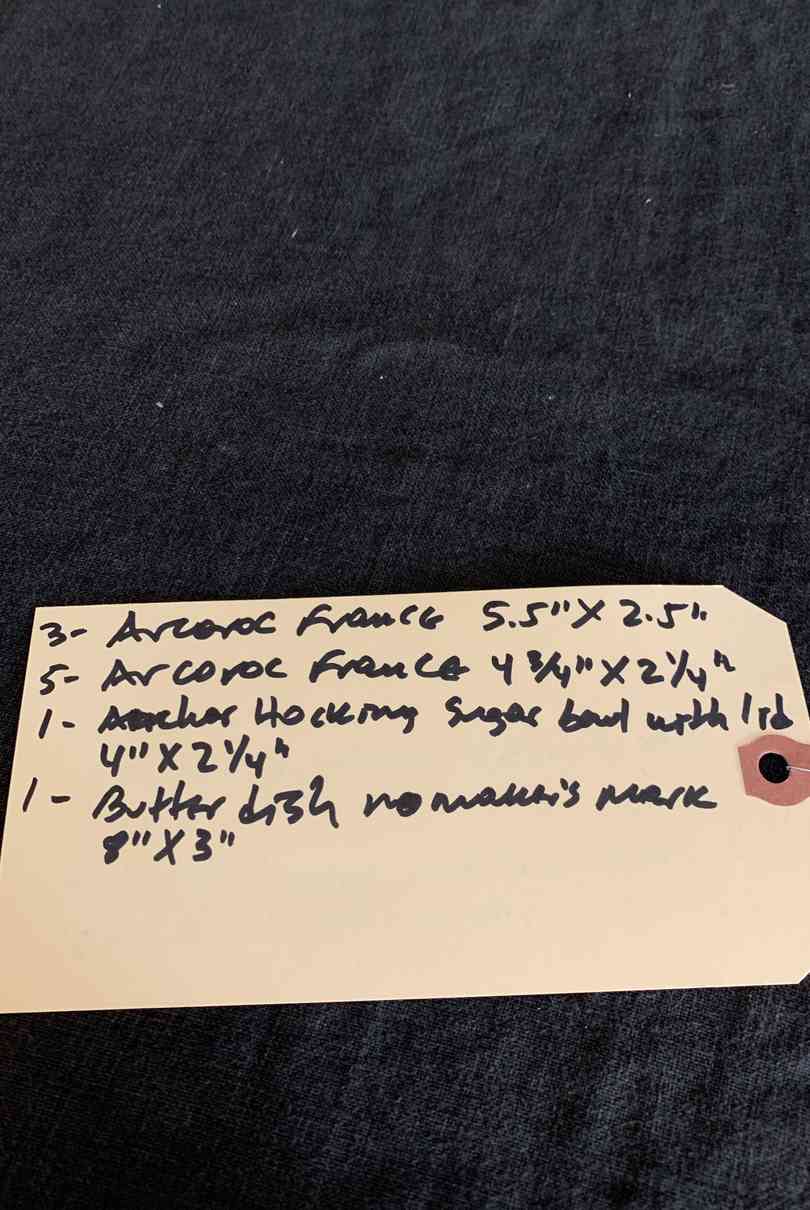 3- Arcoroc France 5.5" X 2.5"
5- Arcoroc France 4 3/4" X 2 1/4"
1- Anchor Hocking Sugar bowl with lid
4" X 2 1/4"
1- Butter dish no maker's mark
8" X 3"